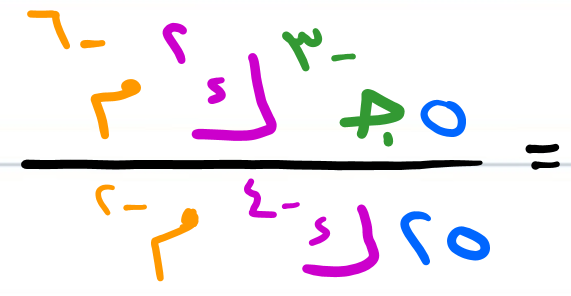 ٥ جـ⁻٣ ك٢ م⁻٦
=
٢٥ ك⁻٤ م⁻٢